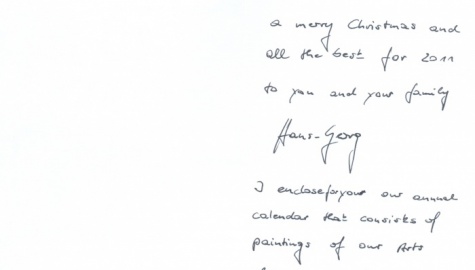 a merry Christmas and
all the best for 2011
to you and your family
Hans-Georg
I enclose for your our annual
calendar that consists of
paintings of our Arts